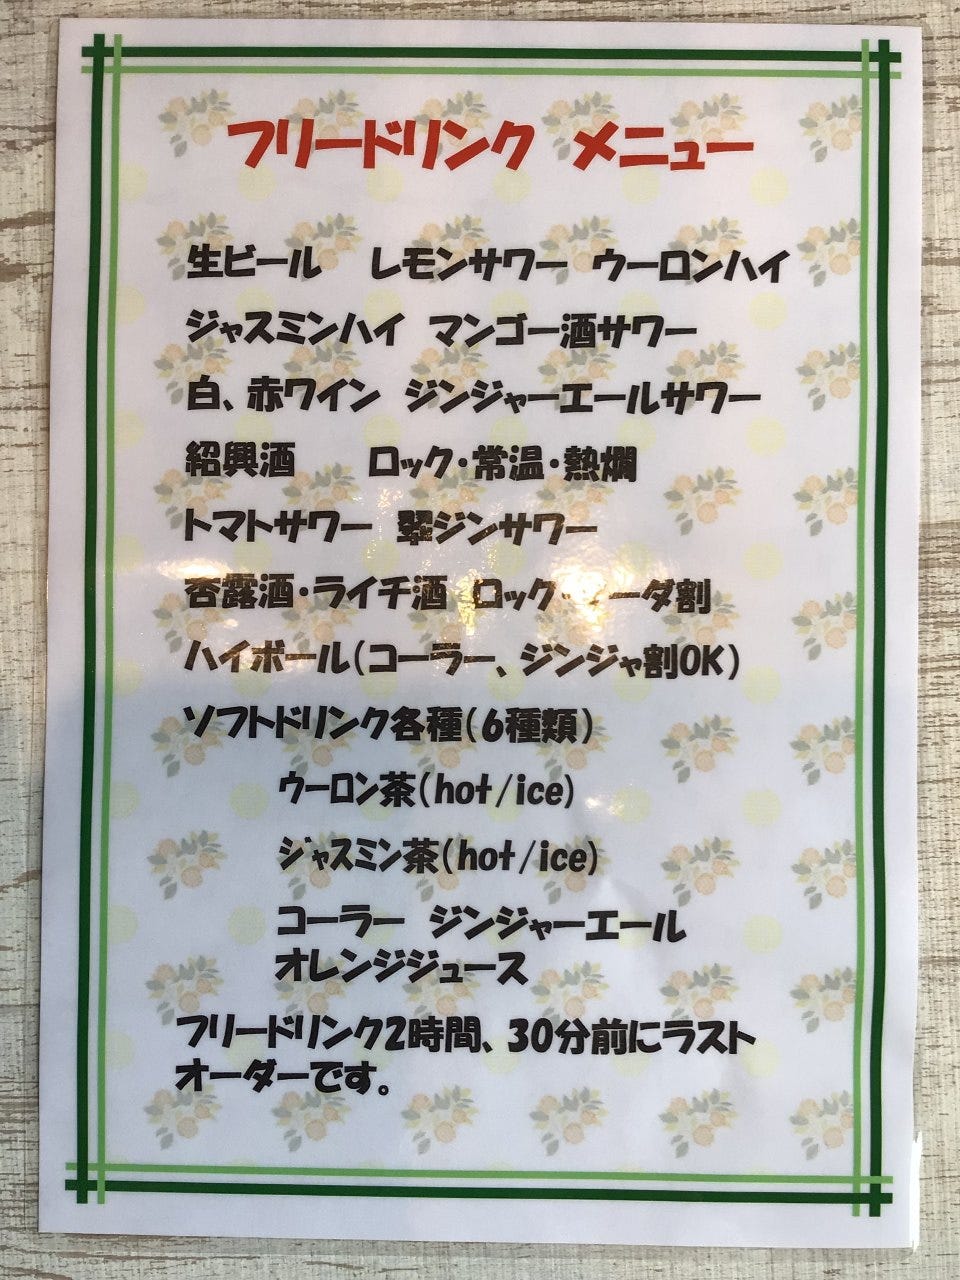 フリードリンク メニュー
生ビール レモンサワー ウーロンハイ
ジャスミンハイ マンゴー酒サワー
白、赤ワイン ジンジャーエールサワー
紹興酒 ロック・常温・熱燗
トマトサワー 翠ジンサワー
杏露酒・ライチ酒 ロック・ソーダ割
ハイボール(コーラー、ジンジャ割OK)
ソフトドリンク各種(6種類)
ウーロン茶(hot/ice)
ジャスミン茶(hot/ice)
コーラー ジンジャーエール
オレンジジュース
フリードリンク2時間、30分前にラスト
オーダーです。